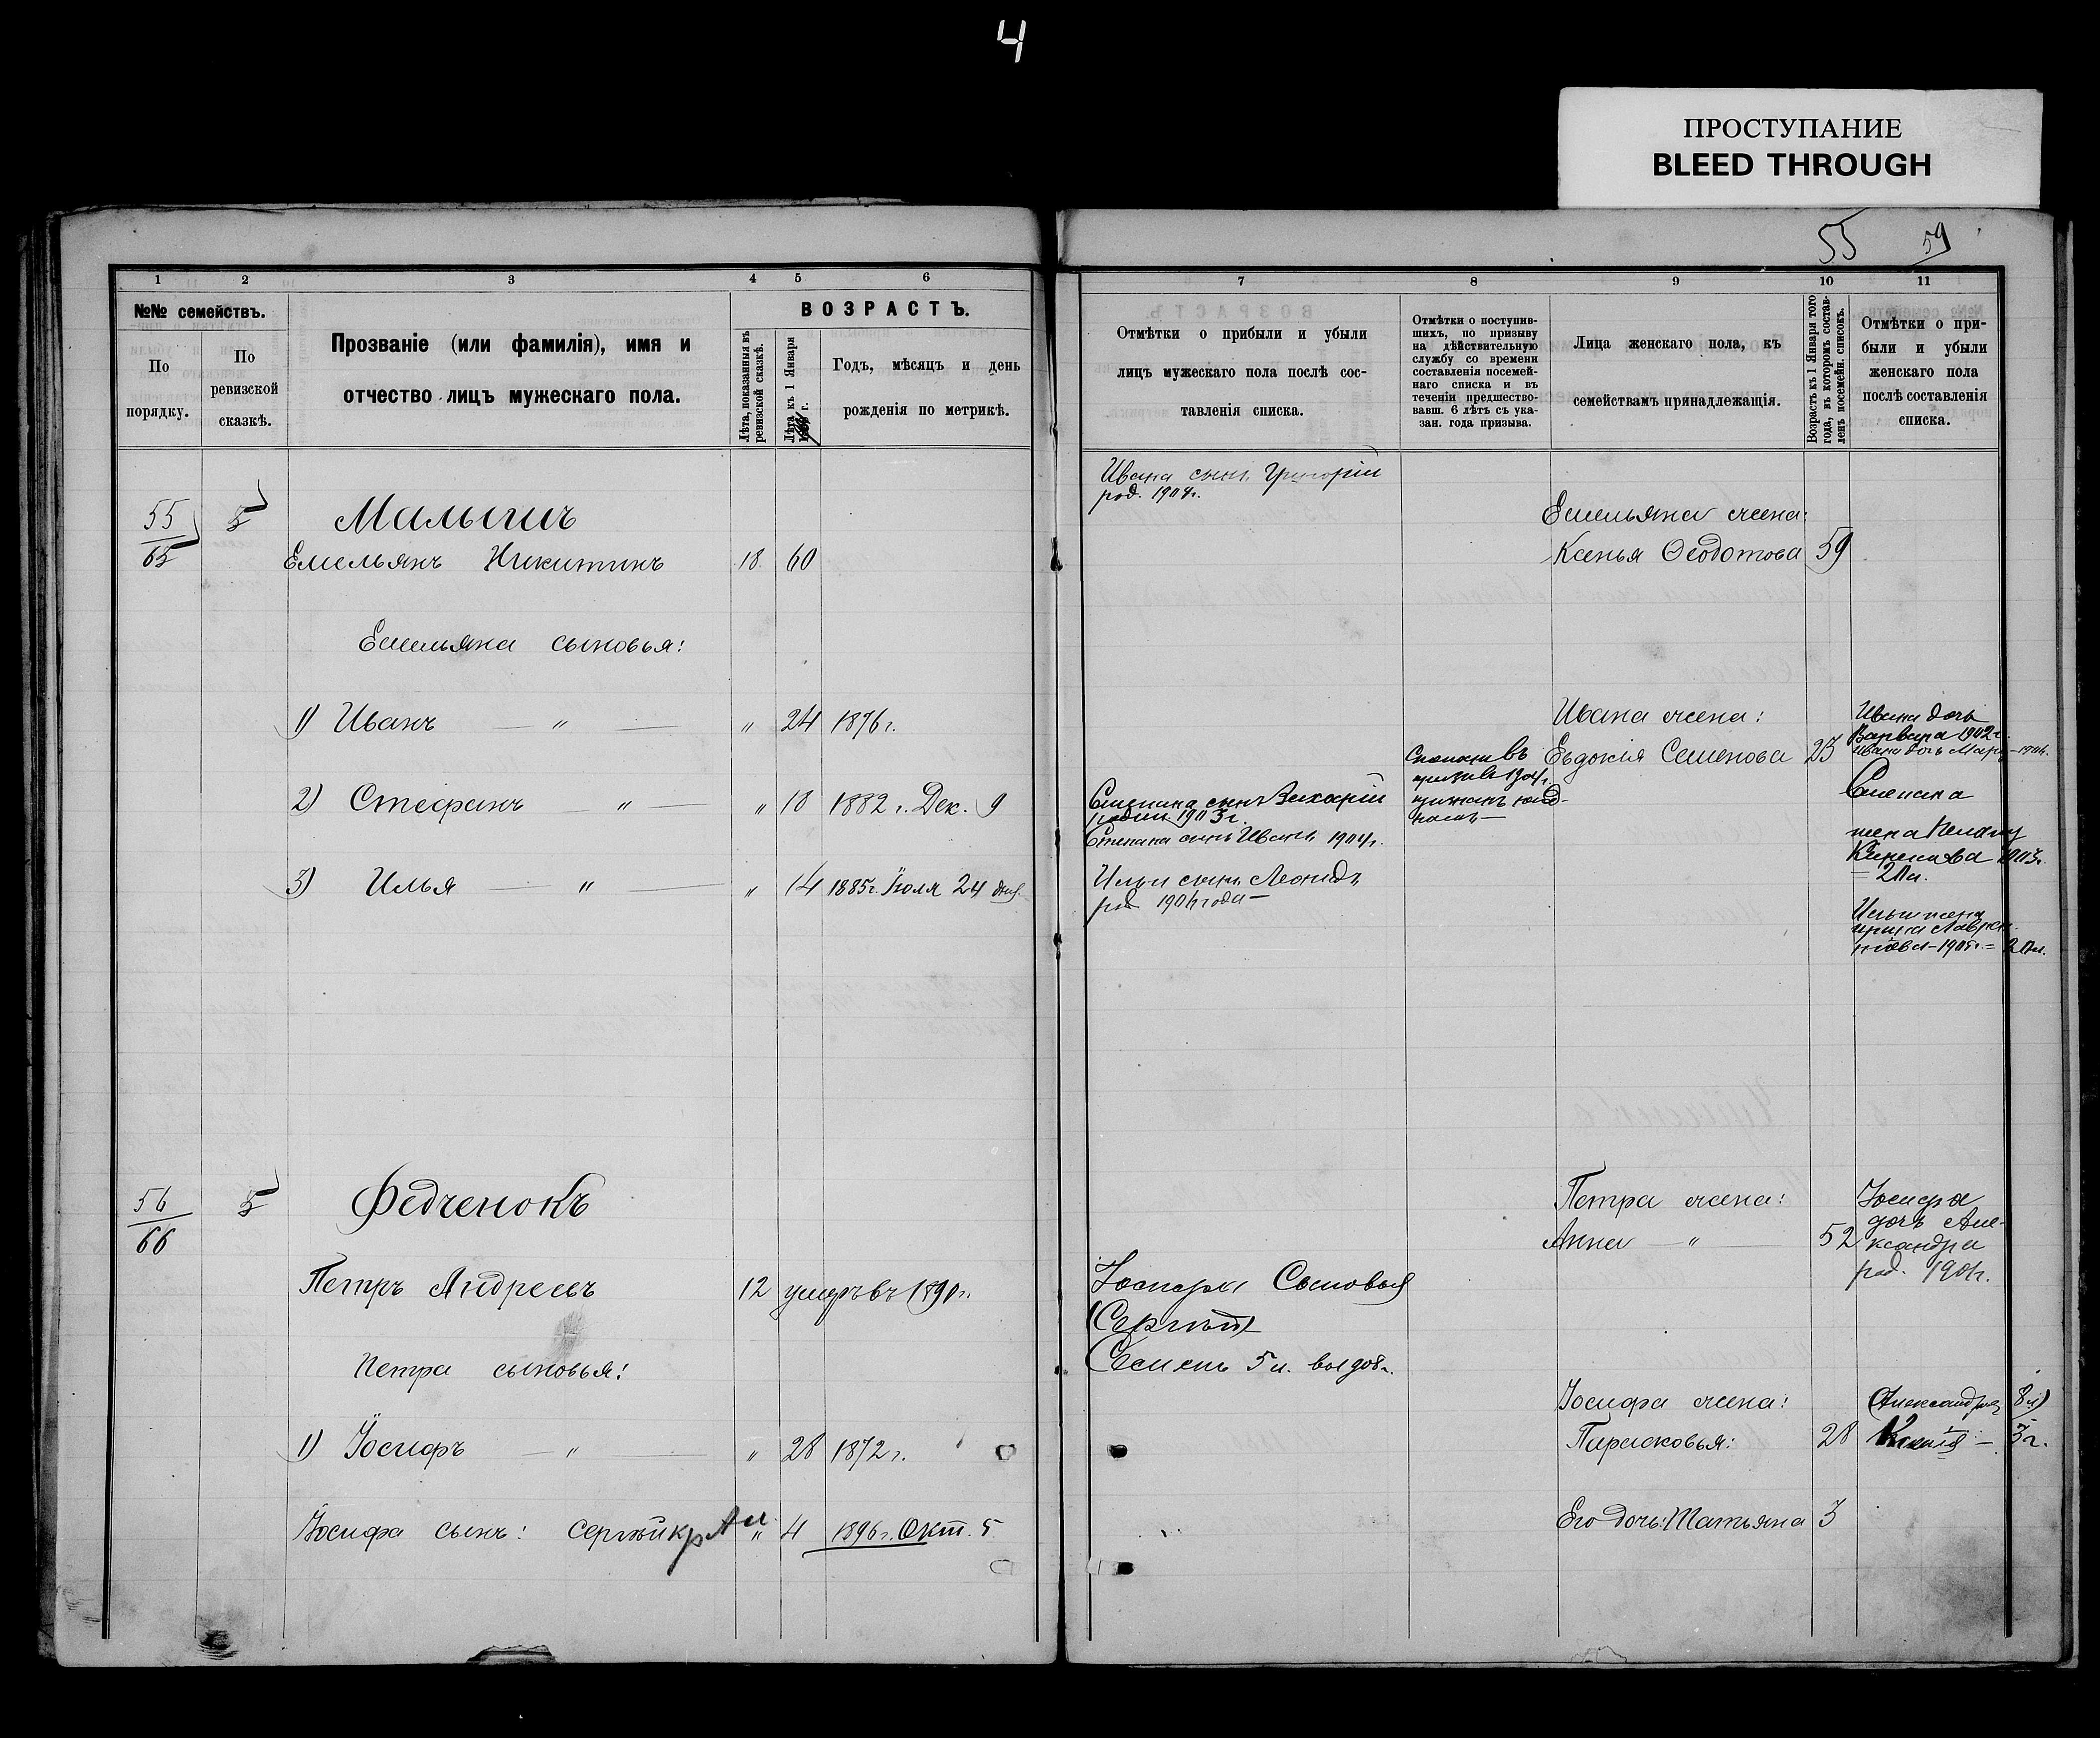 4
ПРОСТУПАНИЕ
BLEED THROUGH
55 59
1 2 3 4 5 6
№№ семействъ.
По порядку.
По ревизской сказкѣ.
Прозваніе (или фамилія), имя и
отчество лицъ мужескаго пола.
ВОЗРАСТЪ.
Лѣта, показанныя въ
ревизской сказкѣ.
Лѣта къ 1 Января
г.
Годъ, мѣсяцъ и день
рожденія по метрикѣ.
55
65
Малыгинъ
Емельянъ Никитинъ 18. 60
Емельяна сыновья:
1) Иванъ — " — " 24 1876 г.
2) Стефанъ " — " 18 1882 г. Дек. 9
3) Илья — " — " 14 1885 г. Іюля 24 дня.
56
66
Федченокъ
Петръ Андреевъ 12 умеръ въ 1890 г.
Петра сыновья:
1) Іосифъ — " — " 28 1872 г.
Іосифа сынъ: Сергѣй " 4 1896 г. Окт. 5
7 8 9 10 11
Отмѣтки о прибыли и убыли
лицъ мужескаго пола послѣ сос-
тавленія списка.
Отмѣтки о поступив-
шихъ, по призыву
на дѣйствительную
службу со времени
составленія посемей-
наго списка и въ
теченіи предшество-
вавш. 6 лѣтъ съ ука-
зан. года призыва.
Лица женскаго пола, къ
семействамъ принадлежащія.
Возрастъ къ 1 Января того
года, въ которомъ состав-
ленъ посемейн. списокъ.
Отмѣтки о при-
были и убыли
женскаго пола
послѣ составленія
списка.
Ивана сынъ Григорій
род. 1904 г.
Емельяна жена:
Ксенья Ѳеодотова 59
Ивана жена:
Евдокія Семенова 23
Ивана дочь
Варвара 1902 г.
Ивана дочь
Степанъ въ
призывъ 1904 г.
Степана сынъ Захарій
родил. 1903 г.
Степана сынъ Иванъ 1904 г.
Степана
жена
1903 г.
Ильи сынъ Леонидъ
род 1904 года —
Ильи жена
Ирина Лаврен-
Петра жена:
Анна — " — 52
Іосифа
дочь Але-
ксандра
род. 1901 г.
Іосифа Сыновья
(Сергѣй)
Семенъ 5 л.
Іосифа жена:
Парасковья: 28
(Александра 8 л)
Ксенія — 3 г.
Его дочь: Татьяна 3